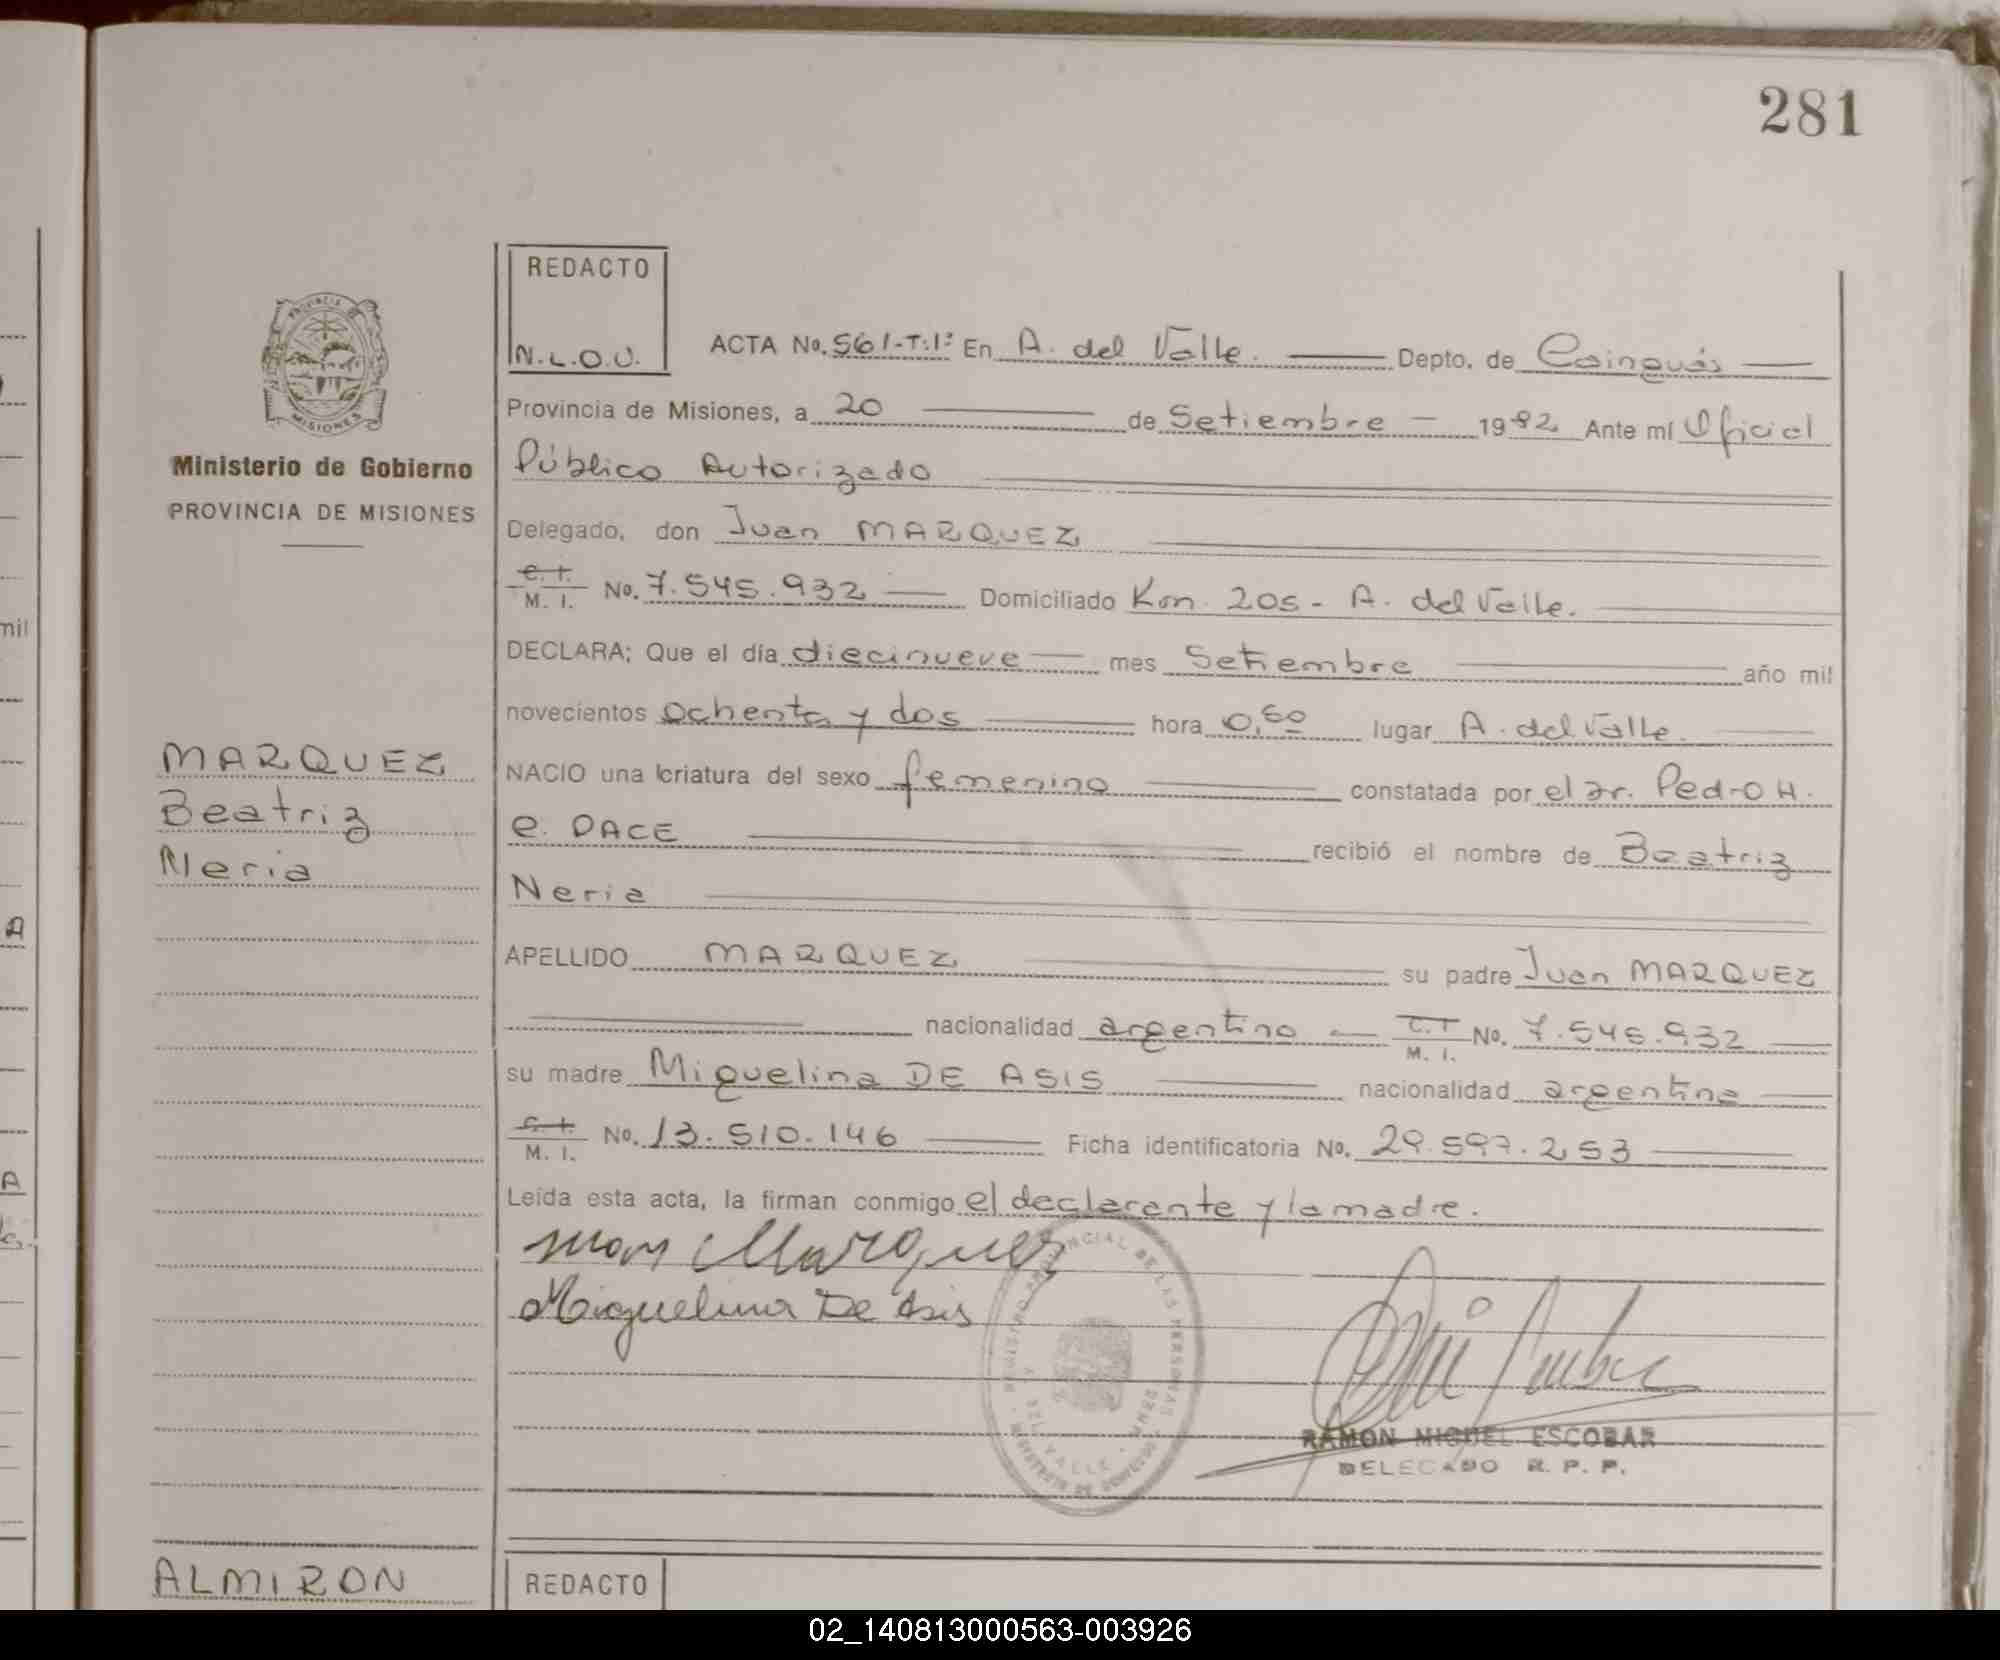 281
REDACTO
N.L.O.U.
ACTA No. 561-T:1º En A. del Valle. Depto. de Cainguás
Provincia de Misiones, a 20 de Setiembre 1982 Ante mí Oficial
Público Autorizado
Ministerio de Gobierno
PROVINCIA DE MISIONES
Delegado, don Juan MARQUEZ
C. I. M. I. No. 7.545.932 Domiciliado Km. 205- A. del Valle.
DECLARA; Que el día diecinueve mes Setiembre año mil
novecientos ochenta y dos hora 0,50 lugar A. del Valle.
MARQUEZ
Beatriz
Neria
NACIO una criatura del sexo femenino constatada por el Dr. Pedro H.
e. DACE recibió el nombre de Beatriz
Neria
APELLIDO MARQUEZ su padre Juan MARQUEZ
nacionalidad argentino C. I M. I. No. 7.545.932
su madre Miguelina DE ASIS nacionalidad argentina
C. I. M. I. No. 13.510.146 Ficha identificatoria No. 29.597.253
Leída esta acta, la firman conmigo el declarante y la madre.
Juan Marquez
Miguelina De Asis
RAMON MIGUEL ESCOBAR
DELEGADO R. P. P.
ALMIRON
REDACTO
02_140813000563-003926